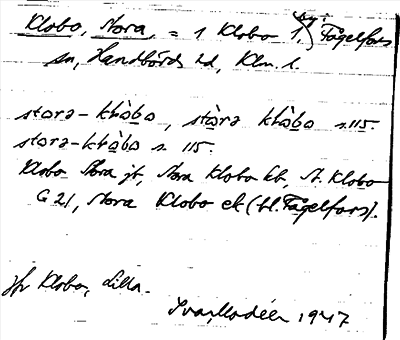 Klobo, Stora, = 1 Klobo 1, Fågelfors
sn, Handbörd hd, Klm. l.
storə-khòbo, stòrə khòbo s. 115.
storə-khòbo s. 115.
Klobo Stora jt, Stora Klobo hb, St. Klobo
G 21, Stora Klobo ek (bl. Fågelfors).
jfr Klobo, Lilla.
1947